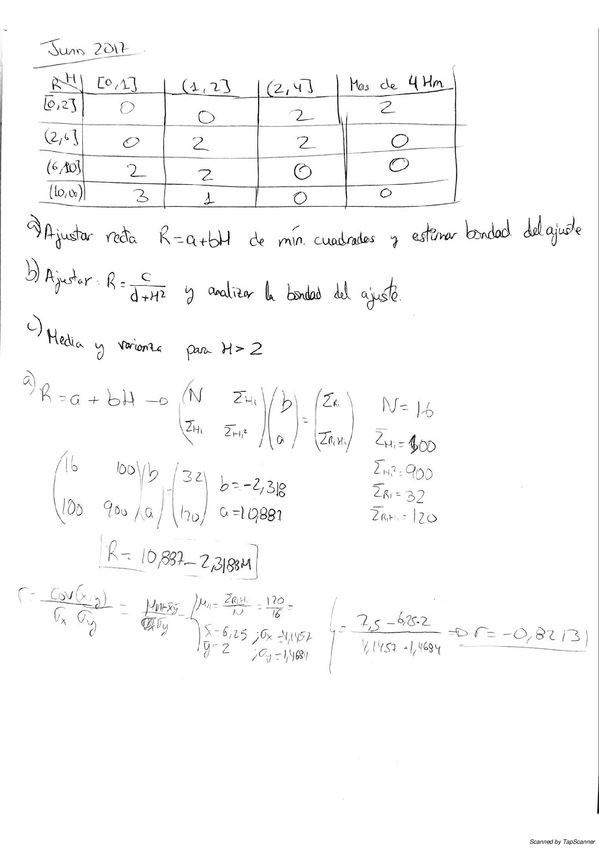 Junio 2017
R H [0,1] (1,2] (2,4] Mas de 4 Hm
[0,2] 0 0 2 2
(2,6] 0 2 2 0
(6,10] 2 2 0 0
(10,∞) 3 1 0 0
a) Ajustar recta R=a+bH de mín. cuadrados y estimar bondad del ajuste
b) Ajustar: R = c/(d+H²) y analizar la bondad del ajuste.
c) Media y varianza para H > 2
a) R = a + bH → (N ΣHi; ΣHi ΣHi²)(b; a) = (ΣRi; ΣRiHi) N = 16
ΣHi = 100
ΣHi² = 900
ΣRi = 32
ΣRiHi = 120
(16 100; 100 900)(b; a) = (32; 120) b = -2,318 a = 10,887
R = 10,887 - 2,3188H
r = cov(x,y)/(σx σy) = { μ11 = ΣRiHi/N = 120/16 =
x̄ = 6,25 ; σx = 4,1457
ȳ = 2 ; σy = 1,4684
= (7,5 - 6,25·2)/(4,1457 · 1,4684) ⇒ r = -0,82131
Scanned by TapScanner